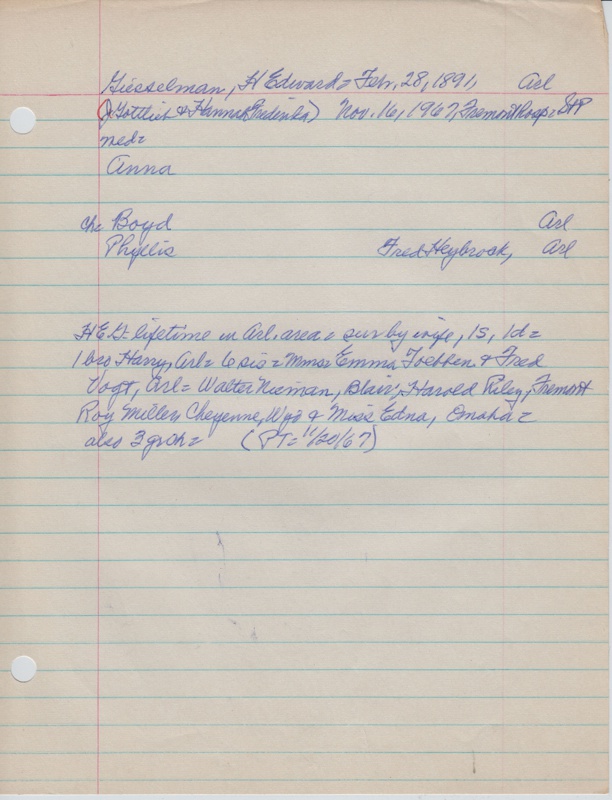 Giesselman, H Edward = Feb, 28, 1891, Arl
(J. Gottlieb & Hannah Fredericka) Nov. 16, 1967, Fremont Hosp =
med=
Anna
ch: Boyd Arl
Phyllis Fred Heybrock, Arl
HEG= lifetime in Arl. area = sur by wife, 1s, 1d=
1 bro Harry, Arl= 6 sis = Mmes Emma Toebben & Fred
Vogt, Arl= Walter Nieman, Blair, Harold Riley, Fremont
Roy Miller, Cheyenne, Wyo & Miss Edna, Omaha =
also 3 grch= (PT= 11/20/67)